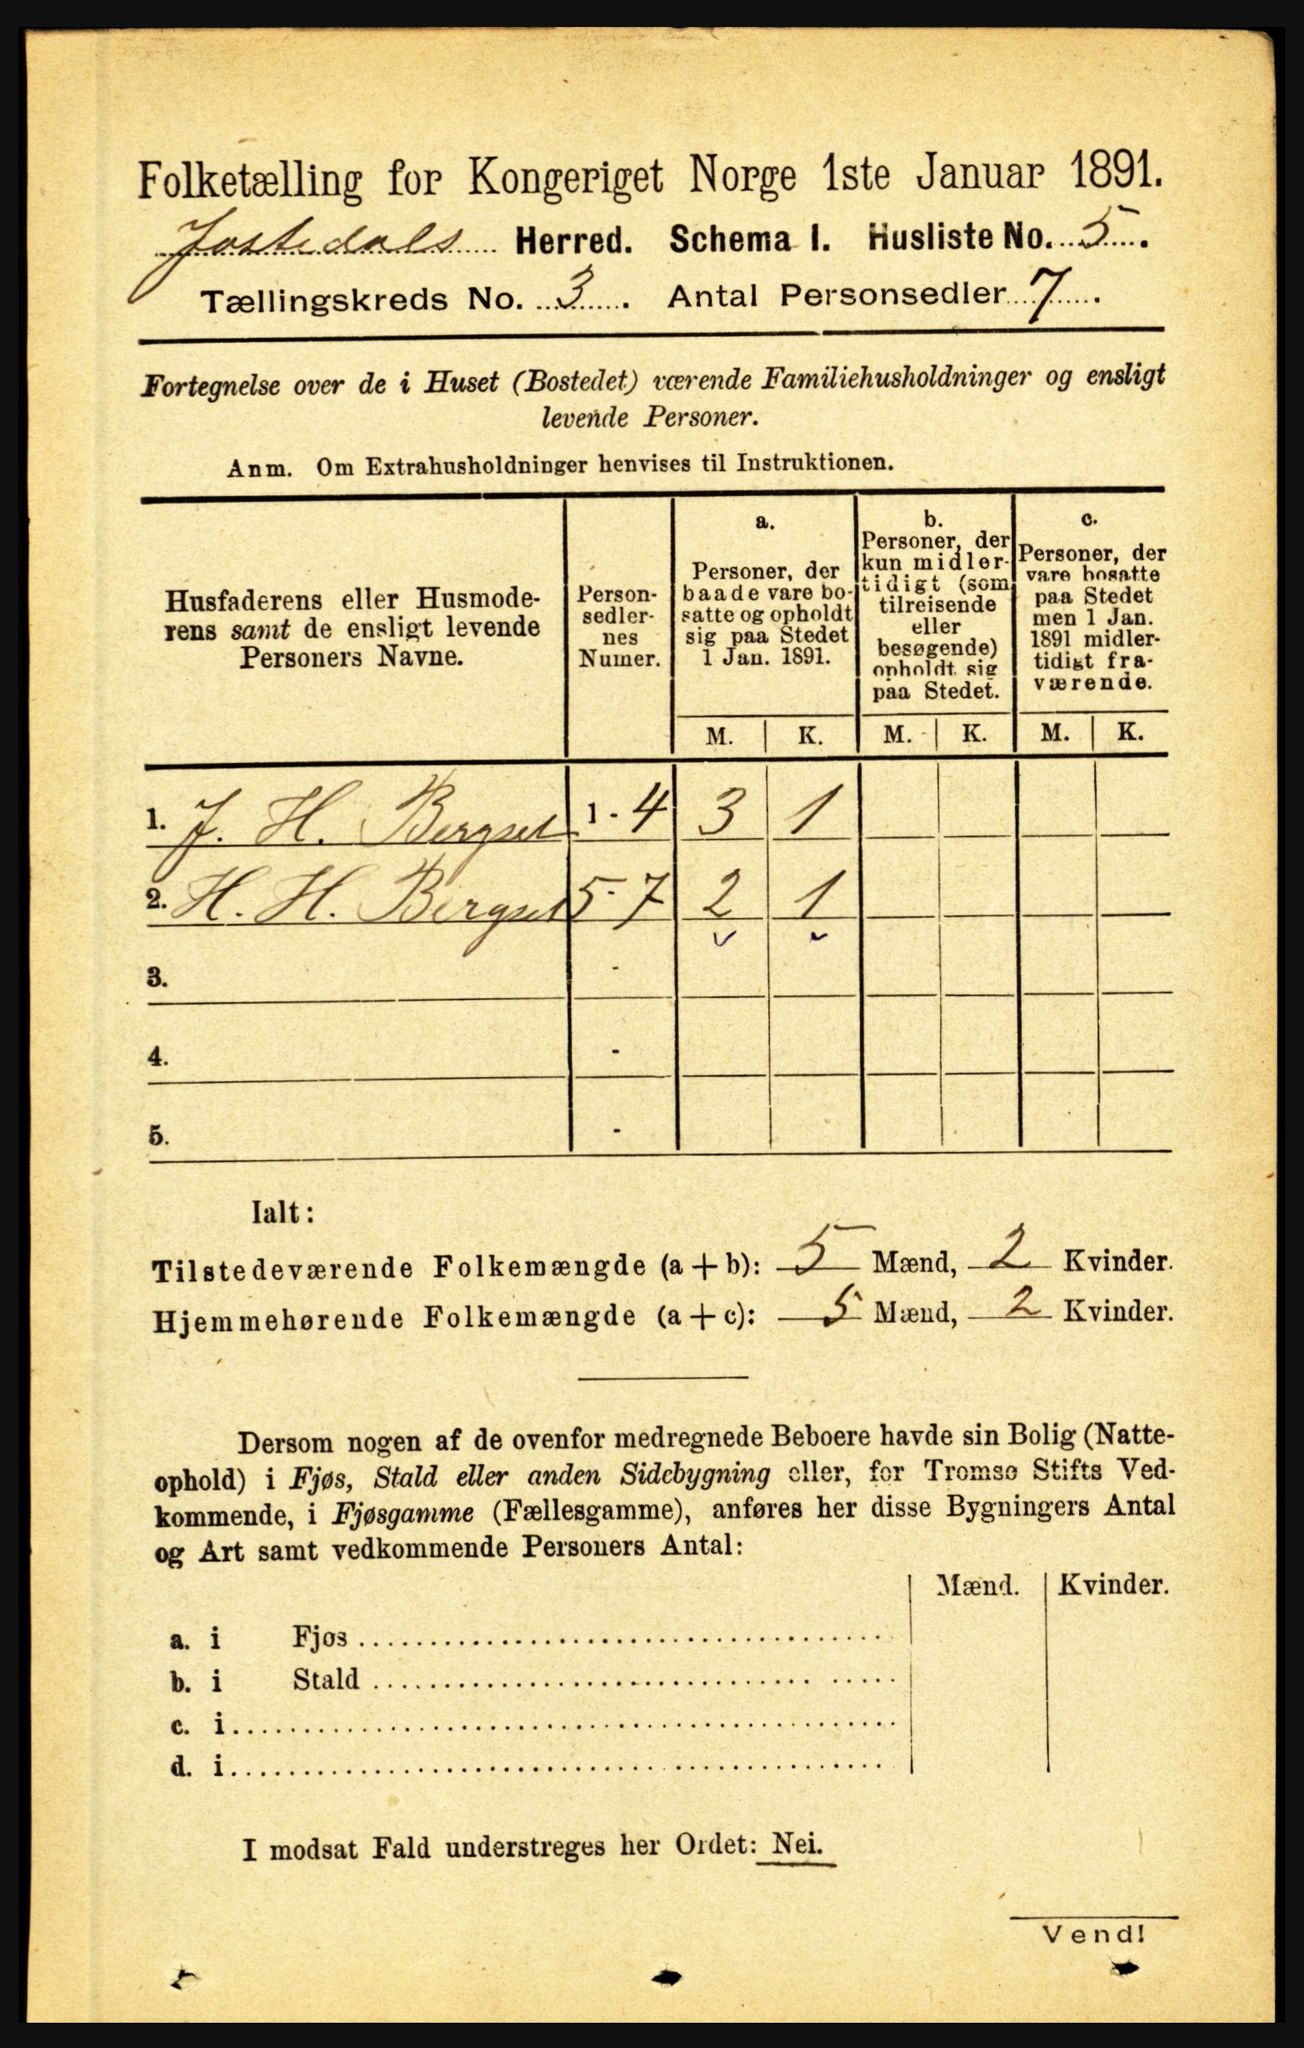 Folketælling for Kongeriget Norge 1ste Januar 1891.
Jostedals Herred. Schema I. Husliste No. 5.
Tællingskreds No. 3. Antal Personsedler 7.
Fortegnelse over de i Huset (Bostedet) værende Familiehusholdninger og ensligt
levende Personer.
Anm. Om Extrahusholdninger henvises til Instruktionen.
Husfaderens eller Husmode-
rens samt de ensligt levende
Personers Navne.
Person-
sedler-
nes
Numer.
a.
Personer, der
baade vare bo-
satte og opholdt
sig paa Stedet
1 Jan. 1891.
b.
Personer, der
kun midler-
tidigt (som
tilreisende
eller
besøgende)
opholdt sig
paa Stedet.
c.
Personer, der
vare bosatte
paa Stedet
men 1 Jan.
1891 midler-
tidigt fra-
værende.
M. K. M. K. M. K.
1. J. H. Bergset 1 - 4 3 1
2. H. H. Bergset 5 - 7 2 1
3. -
4. -
5. -
Ialt:
Tilstedeværende Folkemængde (a + b): 5 Mænd, 2 Kvinder.
Hjemmehørende Folkemængde (a + c): 5 Mænd, 2 Kvinder.
Dersom nogen af de ovenfor medregnede Beboere havde sin Bolig (Natte-
ophold) i Fjøs, Stald eller anden Sidebygning eller, for Tromsø Stifts Ved-
kommende, i Fjøsgamme (Fællesgamme), anføres her disse Bygningers Antal
og Art samt vedkommende Personers Antal:
Mænd. Kvinder.
a. i Fjøs
b. i Stald
c. i
d. i
I modsat Fald understreges her Ordet: Nei.
Vend!